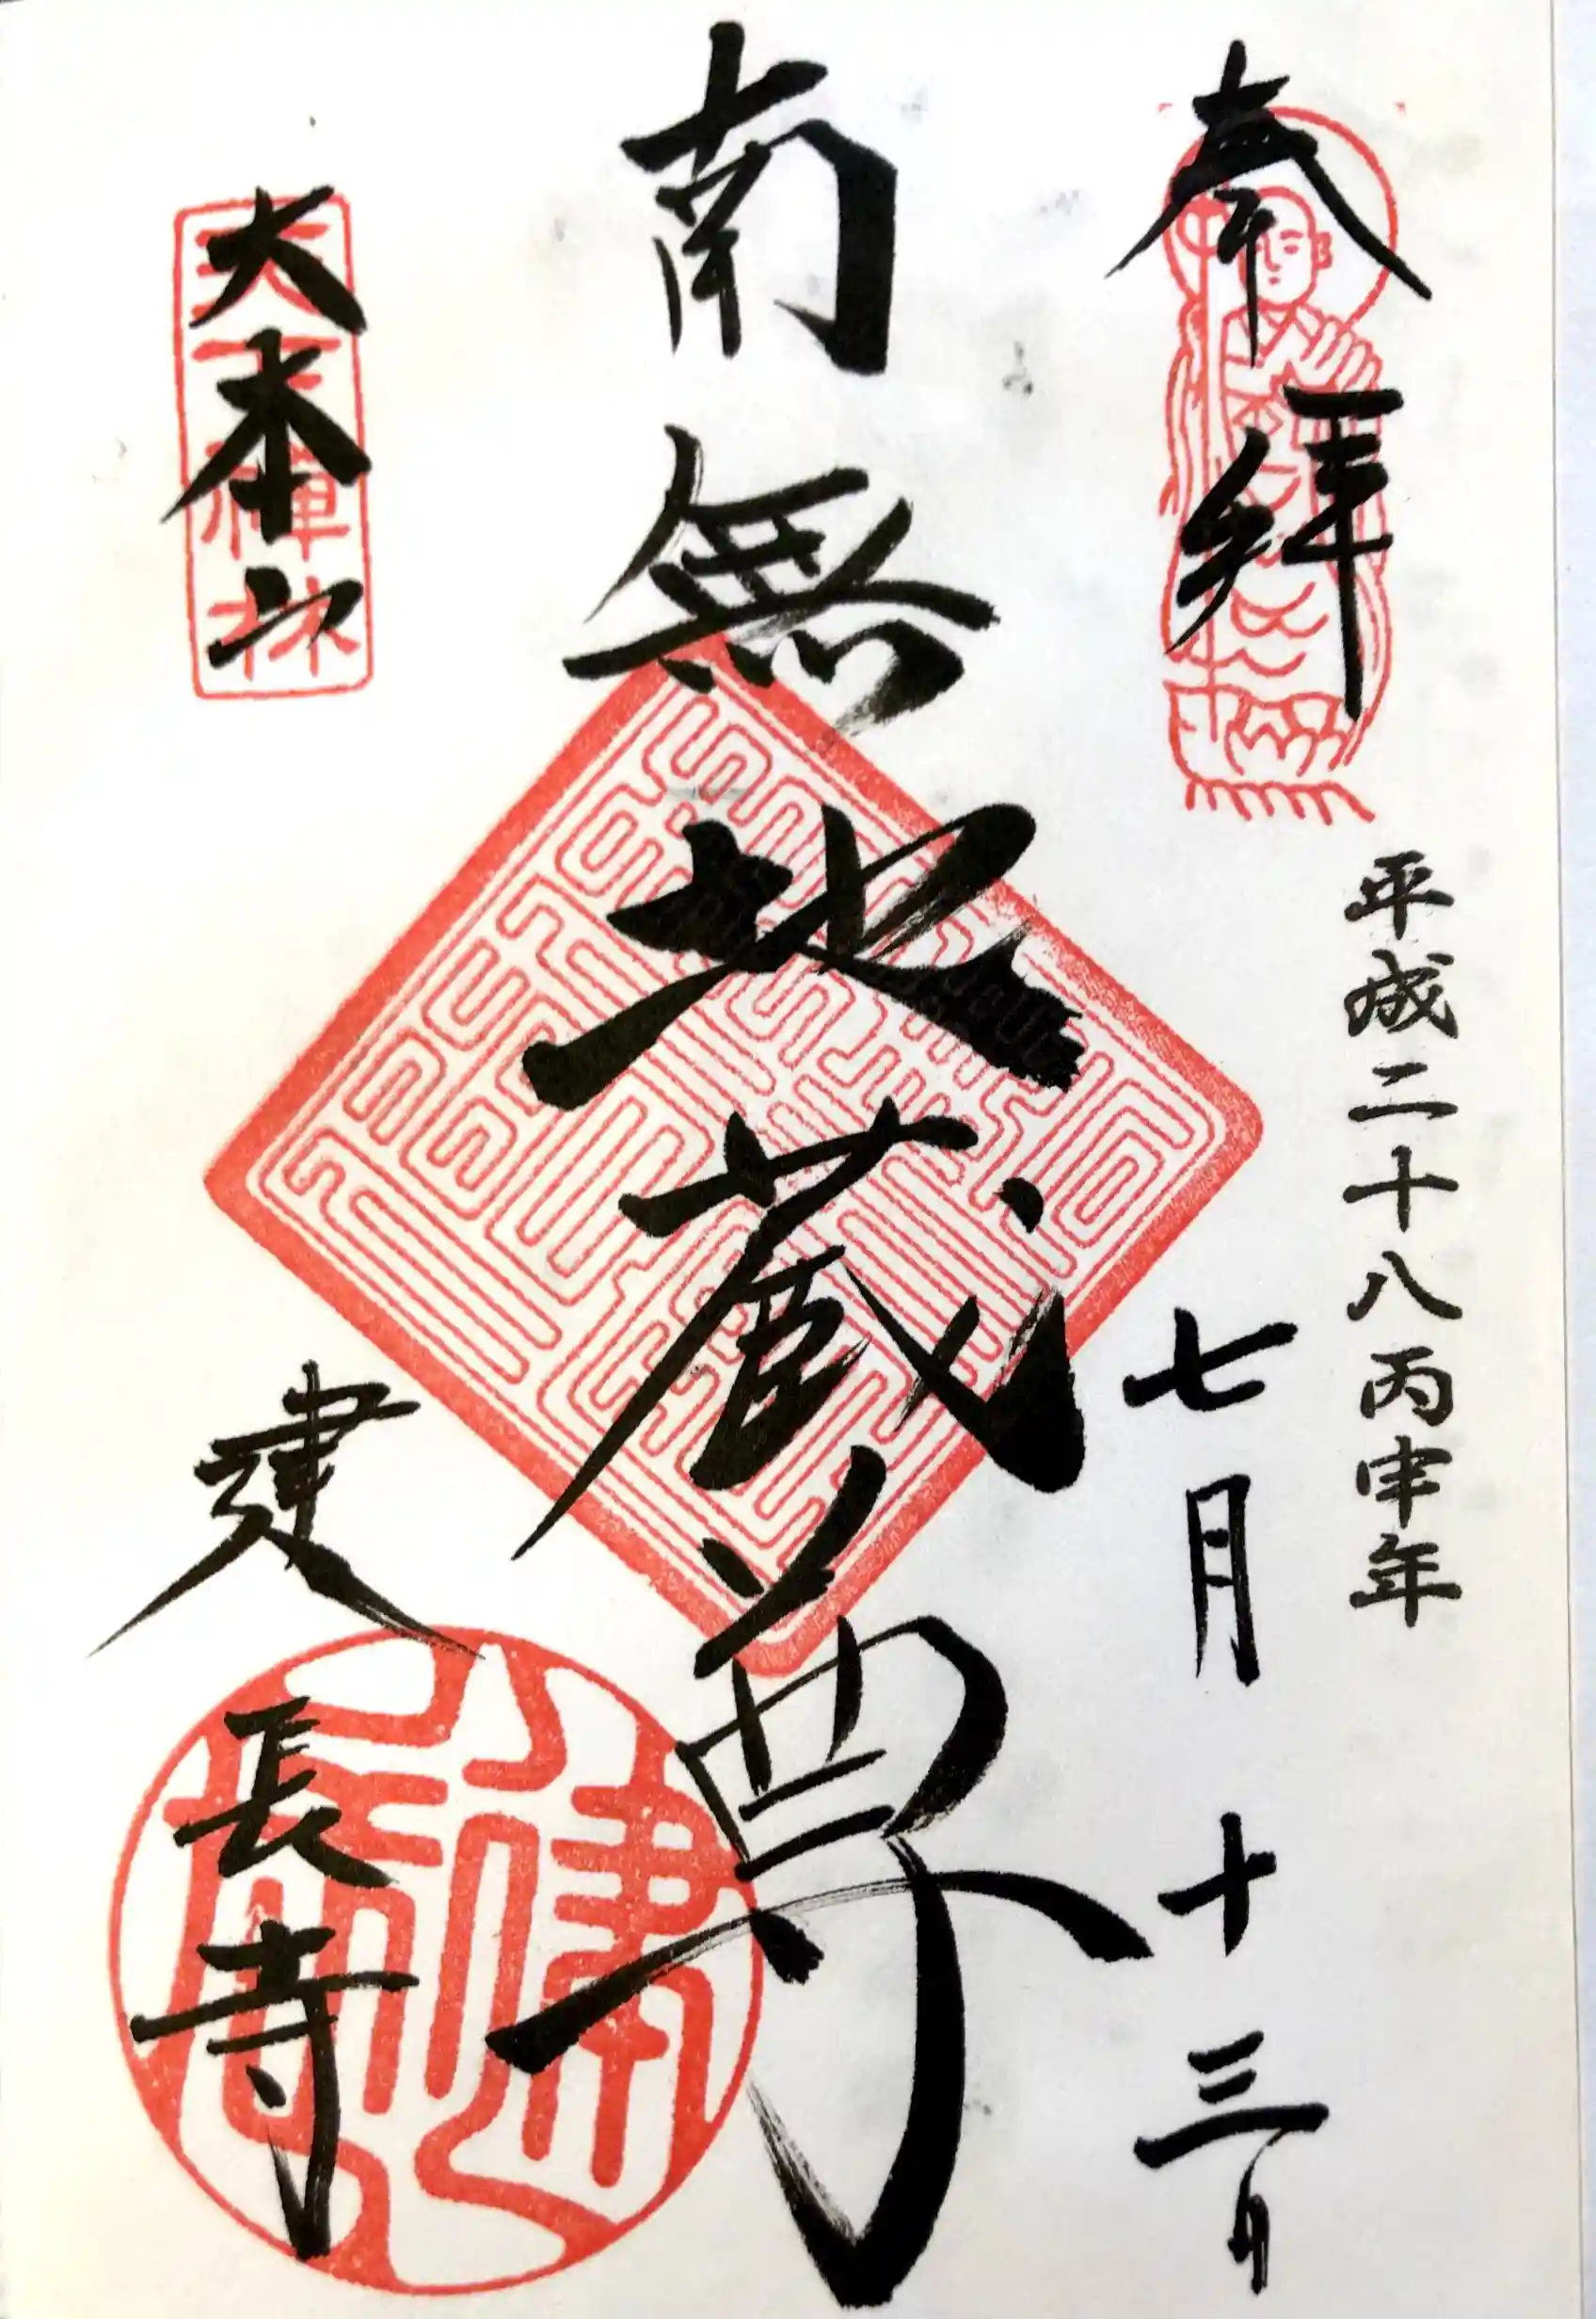 奉拝
平成二十八丙申年
七月十三日
南無地蔵尊
大本山
建長寺
天下禅林